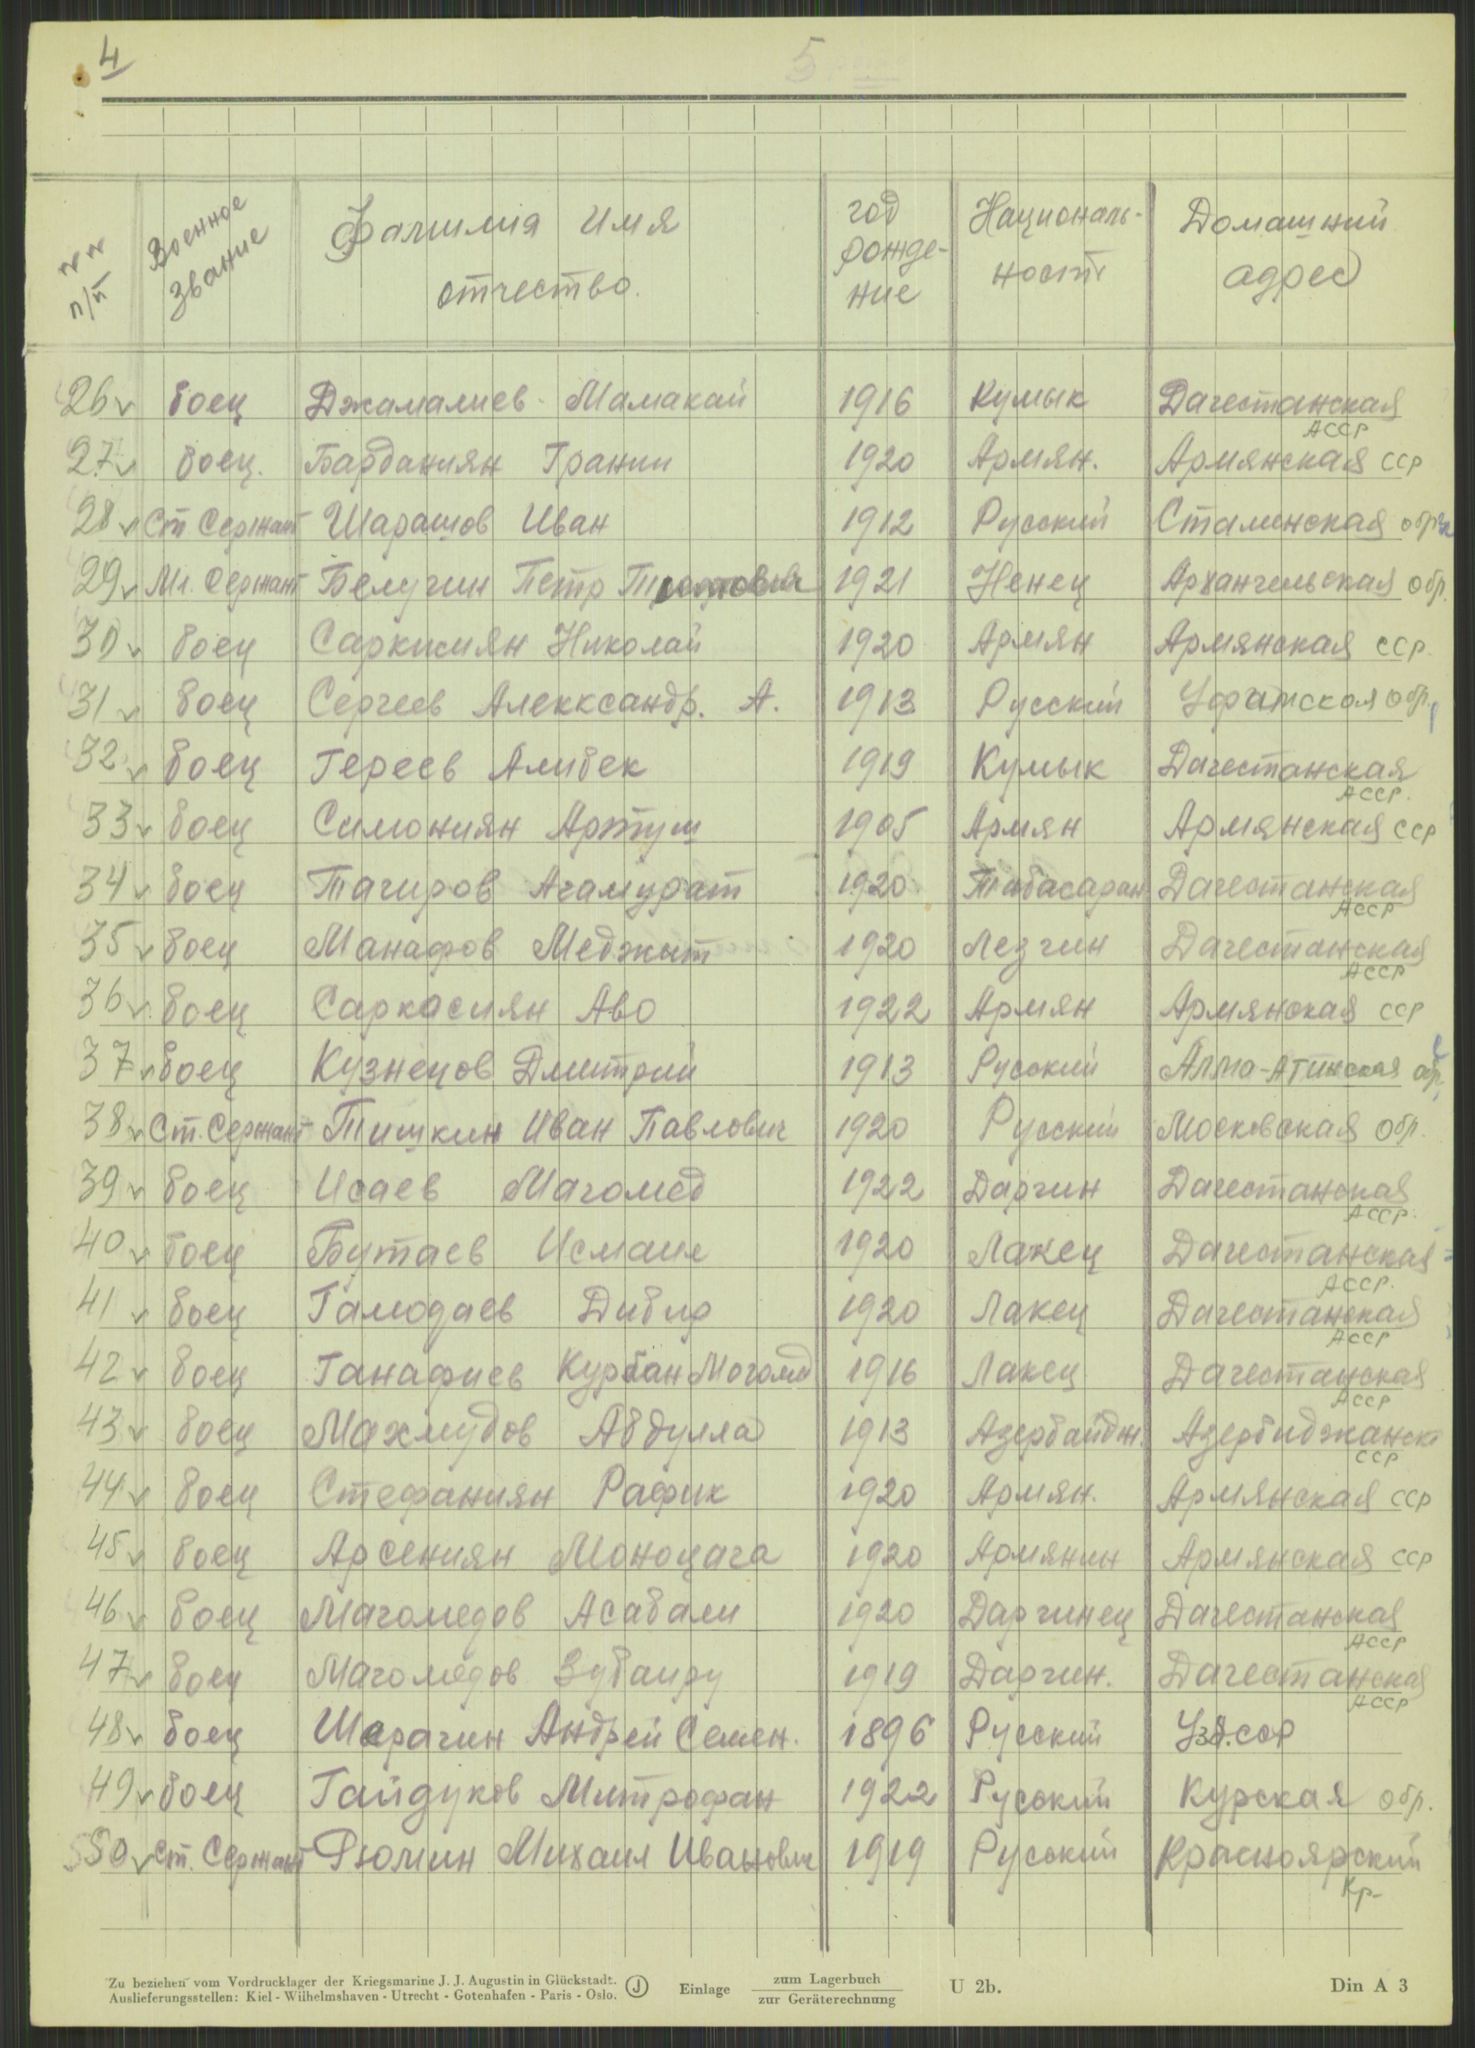 4
5
№№ п/п Военное звание Фамилия Имя отчество. год рождение Националь-ность Домашний адрес
26 v боец Джамалиев Мамакай 1916 Кумык Дагестанская АССР
27 v боец. Барданиян Грании 1920 Армян. Армянская ССР
28 v Ст Сержант Шарашов Иван 1912 Русский Сталинская обр
29 v Мл. Сержант Белугин Петр 1921 Ненец Архангельская Обр.
30 v боец Саркисиян Николай 1920 Армян Армянская ССР.
31 v боец Сергеев Алекксандр. А. 1913 Русский Уфатская Обр.
32 v боец Гереев Алибек 1919 Кумык Дагестанская АССР.
33 v боец Симониян Артуш 1905 Армян Армянская ССР
34 v боец Тагиров Агамурат 1920 Табасаран Дагестанская АССР
35 v боец Манафов Меджит 1920 Лезгин Дагестанская АССР
36 v боец Саркасиян Аво 1922 Армян Армянская ССР
37 v боец Кузнецов Дмитрий 1913 Русский Алма-Атинская обр.
38 v Ст. Сержант Тишкин Иван Павлович 1920 Русский Московская Обр.
39 v боец Исаев Магомед 1922 Даргин Дагестанская АССР.
40 v боец Бутаев Исмаил 1920 Лакец Дагестанская АССР.
41 v боец Гамодаев Дибир 1920 Лакец Дагестанская АССР
42 v боец Ганафиев Курбан Могомд 1916 Лакец Дагестанская АССР
43 v боец Махмудов Абдулла 1913 Азербайдж. Азербиджанск ССР
44 v боец Стефаниян Рафик 1920 Армян. Армянская ССР
45 v боец Арсениян Моноцага 1920 Армянин Армянская ССР
46 v боец Магомедов Асабали 1920 Даргинец Дагестанская АССР
47 v боец Магомедов Зубаиру 1919 Даргин. Дагестанская АССР
48 v боец Шерагин Андрей Семен. 1896 Русский УзБ.ССР
49 v боец Гайдуков Митрофан 1922 Русский Курская обр.
50 v Ст. Сержант Рюмин Михаил Иванович 1919 Русский Красноярский Кр-
Zu beziehen vom Vordrucklager der Kriegsmarine J. J. Augustin in Glückstadt.
Auslieferungsstellen: Kiel - Wilhelmshaven - Utrecht - Gotenhafen - Paris - Oslo.
J
Einlage zum Lagerbuch
zur Geräterechnung
U 2b.
Din A 3